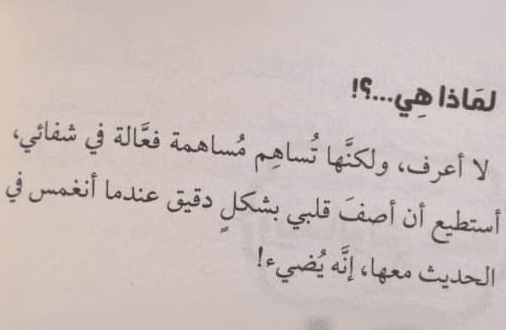 لمَاذا هِي...؟!
لا أعرف، ولكنَّها تُساهِم مُساهمة فعَّالة في شفائي،
أستطيع أن أصفَ قلبي بشكلٍ دقيق عندما أنغمس في
الحديث معها، إنَّه يُضيء!